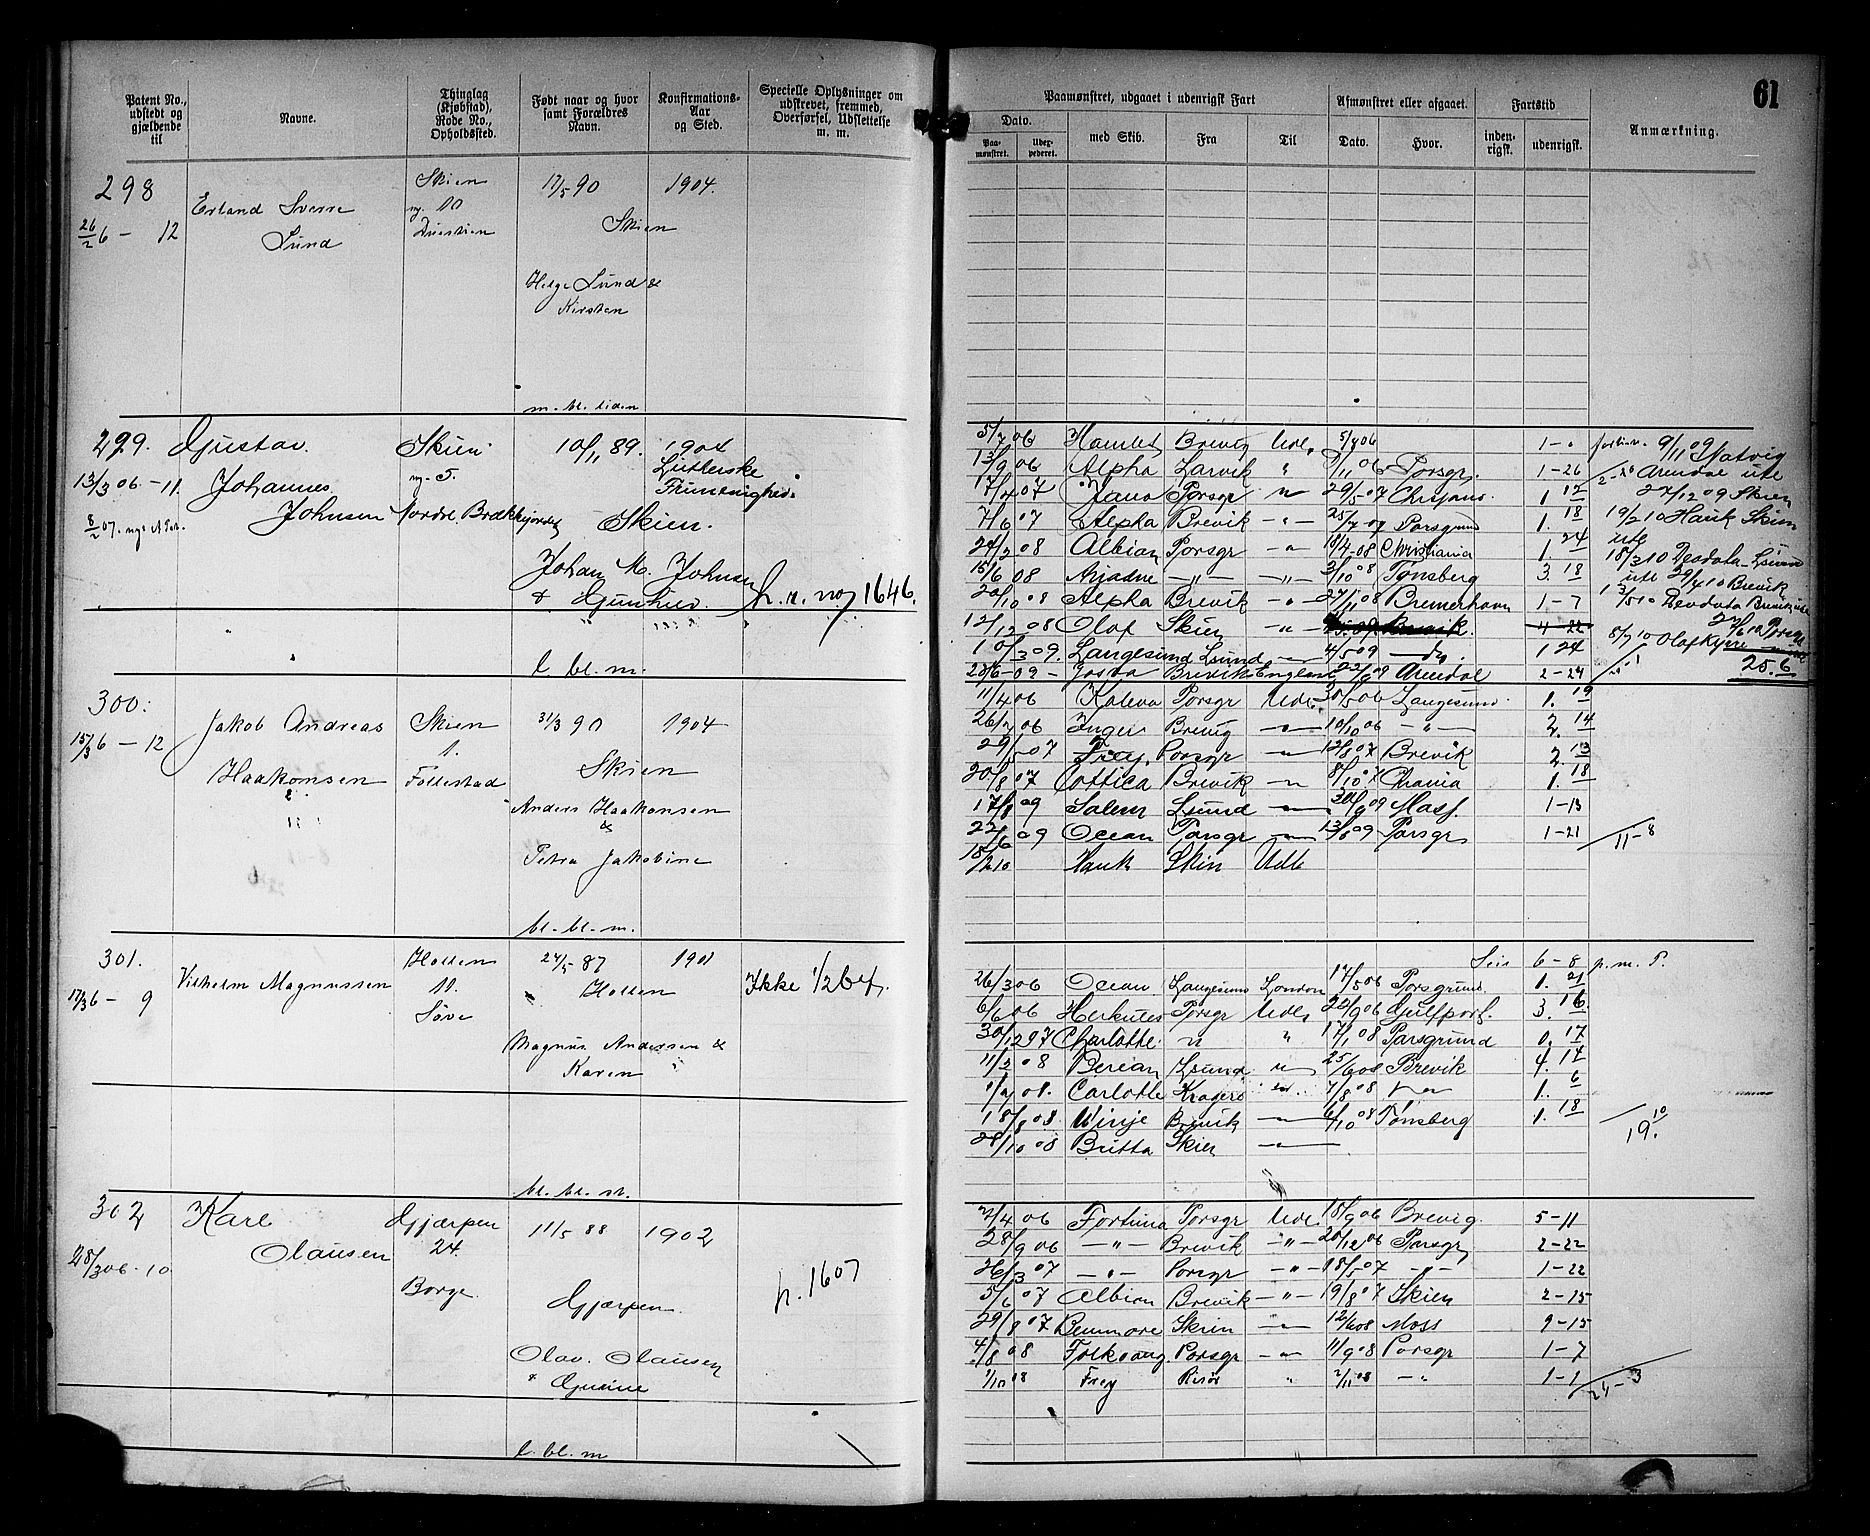 61
Patent No., udstedt og gjældende til
Navne.
Thinglag (Kjøbstad), Rode No., Opholdssted.
Født naar og hvor samt Forældres Navn.
Konfirmations-Aar og Sted.
Specielle Oplysninger om udskrevet, fremmed, Overførsel, Udslettelse m. m.
Paamønstret, udgaaet i udenrigsk Fart
Afmønstret eller afgaaet.
Fartstid
Anmærkning.
Dato.
Paa-mønstret.
med Skib.
Fra
Til
Dato.
Hvor.
inden-rigsk.
udenrigsk.
298
26/2 6 - 12
Erland Sverre
Lund
Skien
17/5 90
Skien
Helge Lund &
Kirsten
1904.
m. bl. liden
299.
13/3 06 - 11.
Gustav
Johannes
Johnsen
Skien
5.
Nordre Brækkejordet
10/11 89.
Skien.
Johan M. Johnsen
& Gunhild.
1904
Lutherske
Frimenighed
h. n. no 1646.
l bl. m.
5/7 06 Hamlet Brevig Udl. 5/8 06
13/9 06 Alpha Larvik " Porsgr. 1-26
17/4 07 Porsgr " 29/5 07 Chrjans. 1 12
7/6 07 Alpha Brevik -"- 25/7 07 Porsgrund 1. 18
24/2 08 Albian Porsgr -"- 18/4-08 Christiania 1 24
15/6 08 Ariadne -"- -"- 3/10 08 Tønsberg 3. 18
20/10 08 Alpha Brevik -"- 27/11 08 Bremerhavn 1-7
12/12 08 Olaf Skien -"- Brevik. 4 22
10/3 09. Langesund Lsund -"- 4/5 09 1 24
20/6-09 - Brevik England 22/8 09 Arendal 2-24
9/11 09
Arendal ute
27/12 09 Skien
19/2 10 Hauk Skien
ute
18/3 10 Deodata
ute 29/4 10 Brevik
Deodata
8/7 10 Olaf Kyrre
25.6
300.
15/3 6 - 12
Jakob Andreas
Haakonsen
Skien
1.
Follestad
31/3 90
Skien
Anders Haakonsen
&
Petra Jakobine
1904
bl. bl. m.
11/4 06 Kaleva Porsgr Udl. 30/5 06 Langesund. 1. 19
26/7 06 Inger Brevig -"- 10/10 06 -"- 2. 14
29/5 07 Frey Porsgr -"- 12/8 07 Brevik 2. 13
20/8 07 Cottica Brevik -"- 8/10 07 Chrania 1. 18
17/8 09 Salem Lsund -"- 30/9 09 Moss. 1-13
22/6 09 Ocean Porsgr -"- 13/8 09 Porsgr 1-21
11-8
18/2 10 Hauk Skien Udl
301.
17/3 6 - 9
Vilhelm Magnussen
Holden
11.
Søve
24/5 87
Holden
Magnus Andersen &
Karen
1901
Ikke 1/2 bef.
bl. bl. st.
Seil 6-8 p. m. P.
26/3 06 Ocean Langesund London 17/5 06 Porsgrund. 1. 21
6/6 06 Herkules Porsgr Udl. 22/9 06 Gulfport. 3. 16
30/12 07 Charlotte " " 17/1 08 Porsgrund 0. 17
11/2 08 Berian Lsund " 25/6 08 Brevik 4. 14
08. Carlotte Kragerø 7/8 08 -"- 1. 6
18/8 08 Vinje Brevik -"- 6/10 08 Tønsberg 1. 18
28/10 08 Britta Skien -"-
19. 10
302
28/3 06 - 10
Karl
Olausen
Gjærpen
24.
Borge.
11/5 88
Gjærpen.
Olav. Olausen
& Gurine
1902
h. 1607
l. bl. m
2/4 06 Fortuna Porsgr Udl. 15/9 06 Brevig. 5-11
28/9 06 -"- Brevik -"- 20/12 06 Porsgr. 2-22
26/3 07 -"- Porsgr -"- 18/5 07 -"- 1-22
5/6 07 Albion Brevik -"- 19/8 07 Skien 2-15
29/8 07 Benmore Skien -"- 12/6 08 Moss 9-15
4/8 08 Folkvang. Porsgr -"- 11/9 08 Porsgr 1-7
1/10 08 Frey Risør " 2/11 08 -"- 1-1
24-3